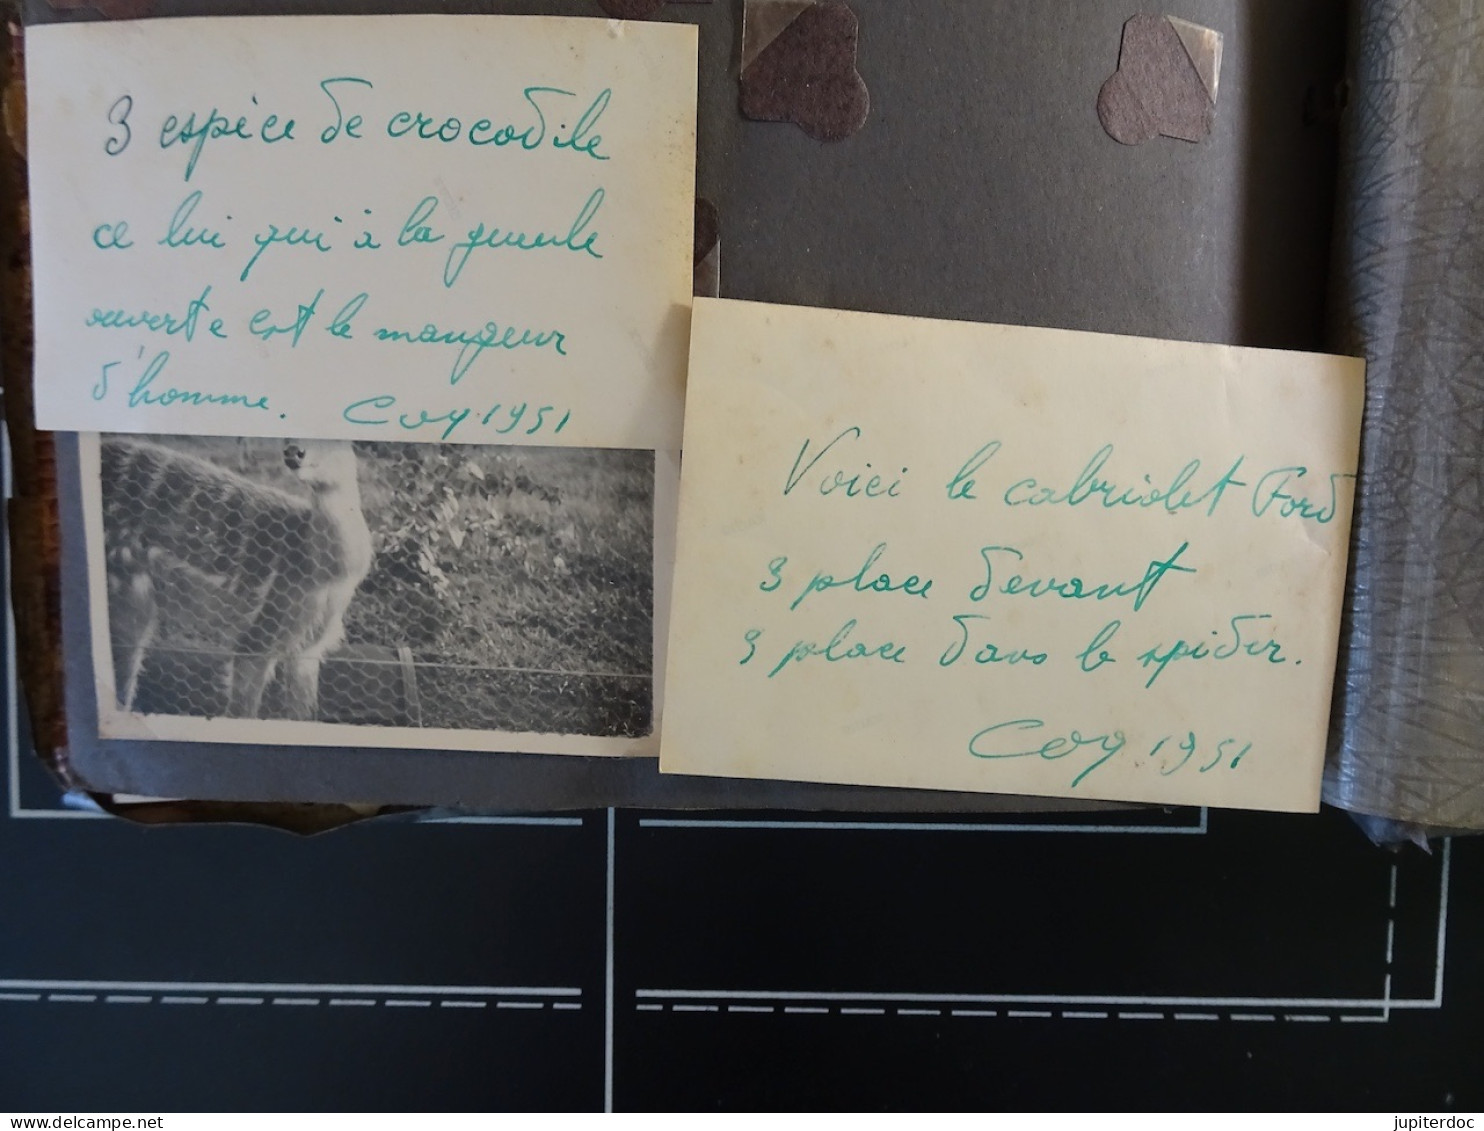 3 espèce de crocodile
ce lui qui à la gueule
ouverte est le mangeur
d'homme. Coq 1951
Voici le cabriolet Ford
3 place devant
3 place dans le spider.
Coq 1951
delcampe.net
jupiterdoc